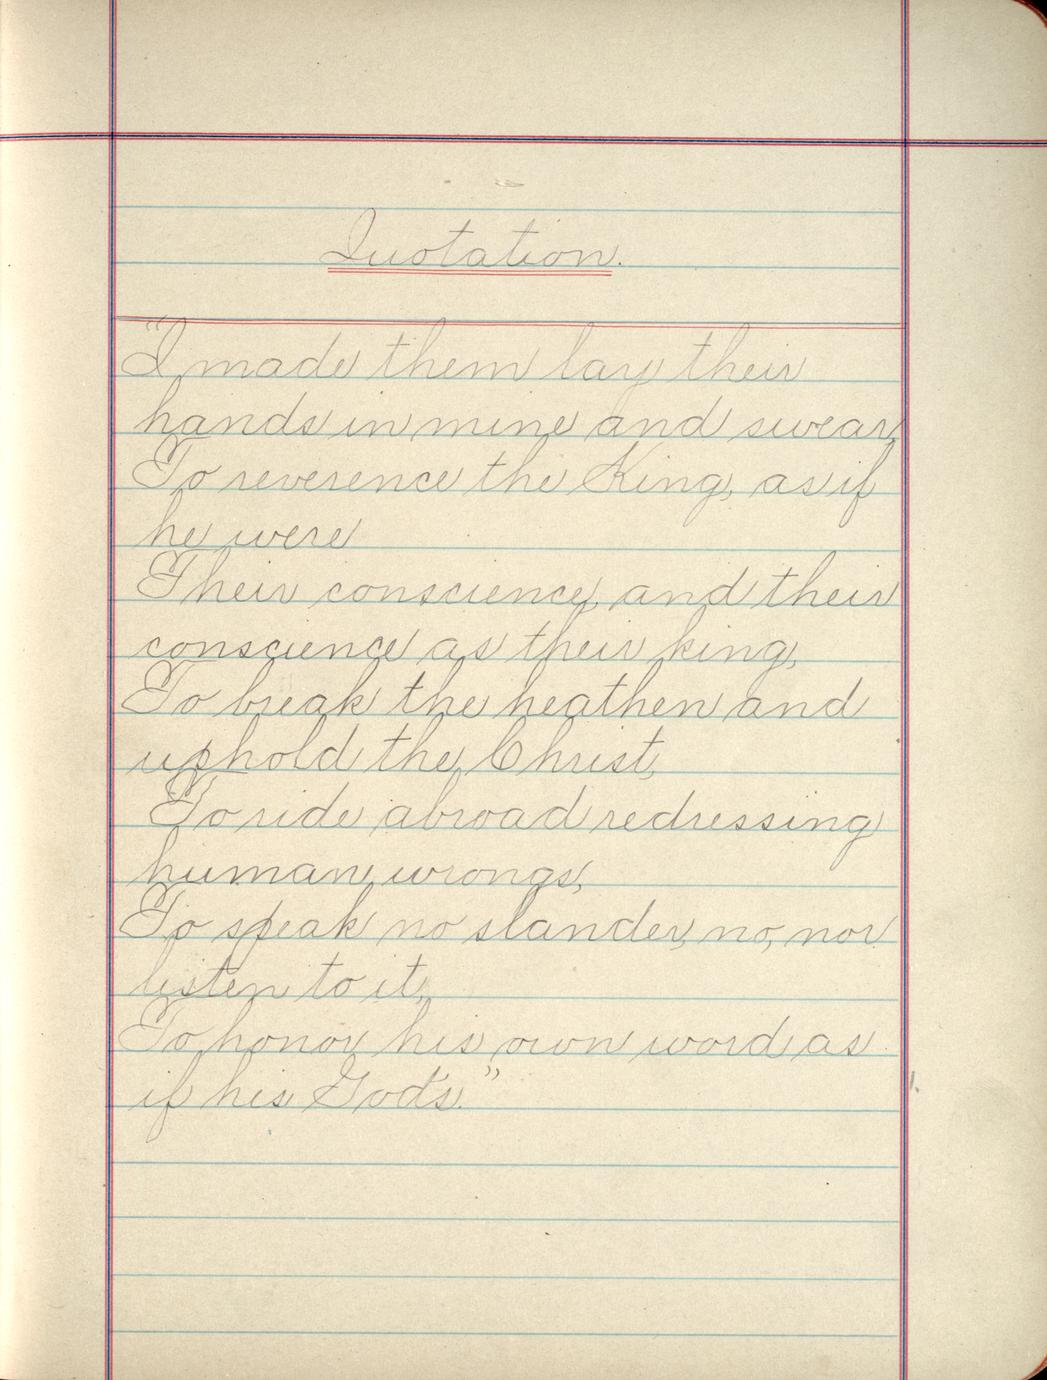 Quotation.
"I made them lay their
hands in mine and swear,
To reverence the King, as if
he were
Their conscience, and their
conscience as their king,
To break the heathen and
uphold the Christ,
To ride abroad redressing
human wrongs,
To speak no slander, no, nor
listen to it,
To honor his own word as
if his God's."